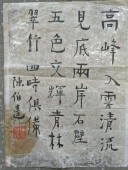 高峰入雲清流
見底兩岸石壁
五色交輝青林
翠竹四時俱備
陳伯達